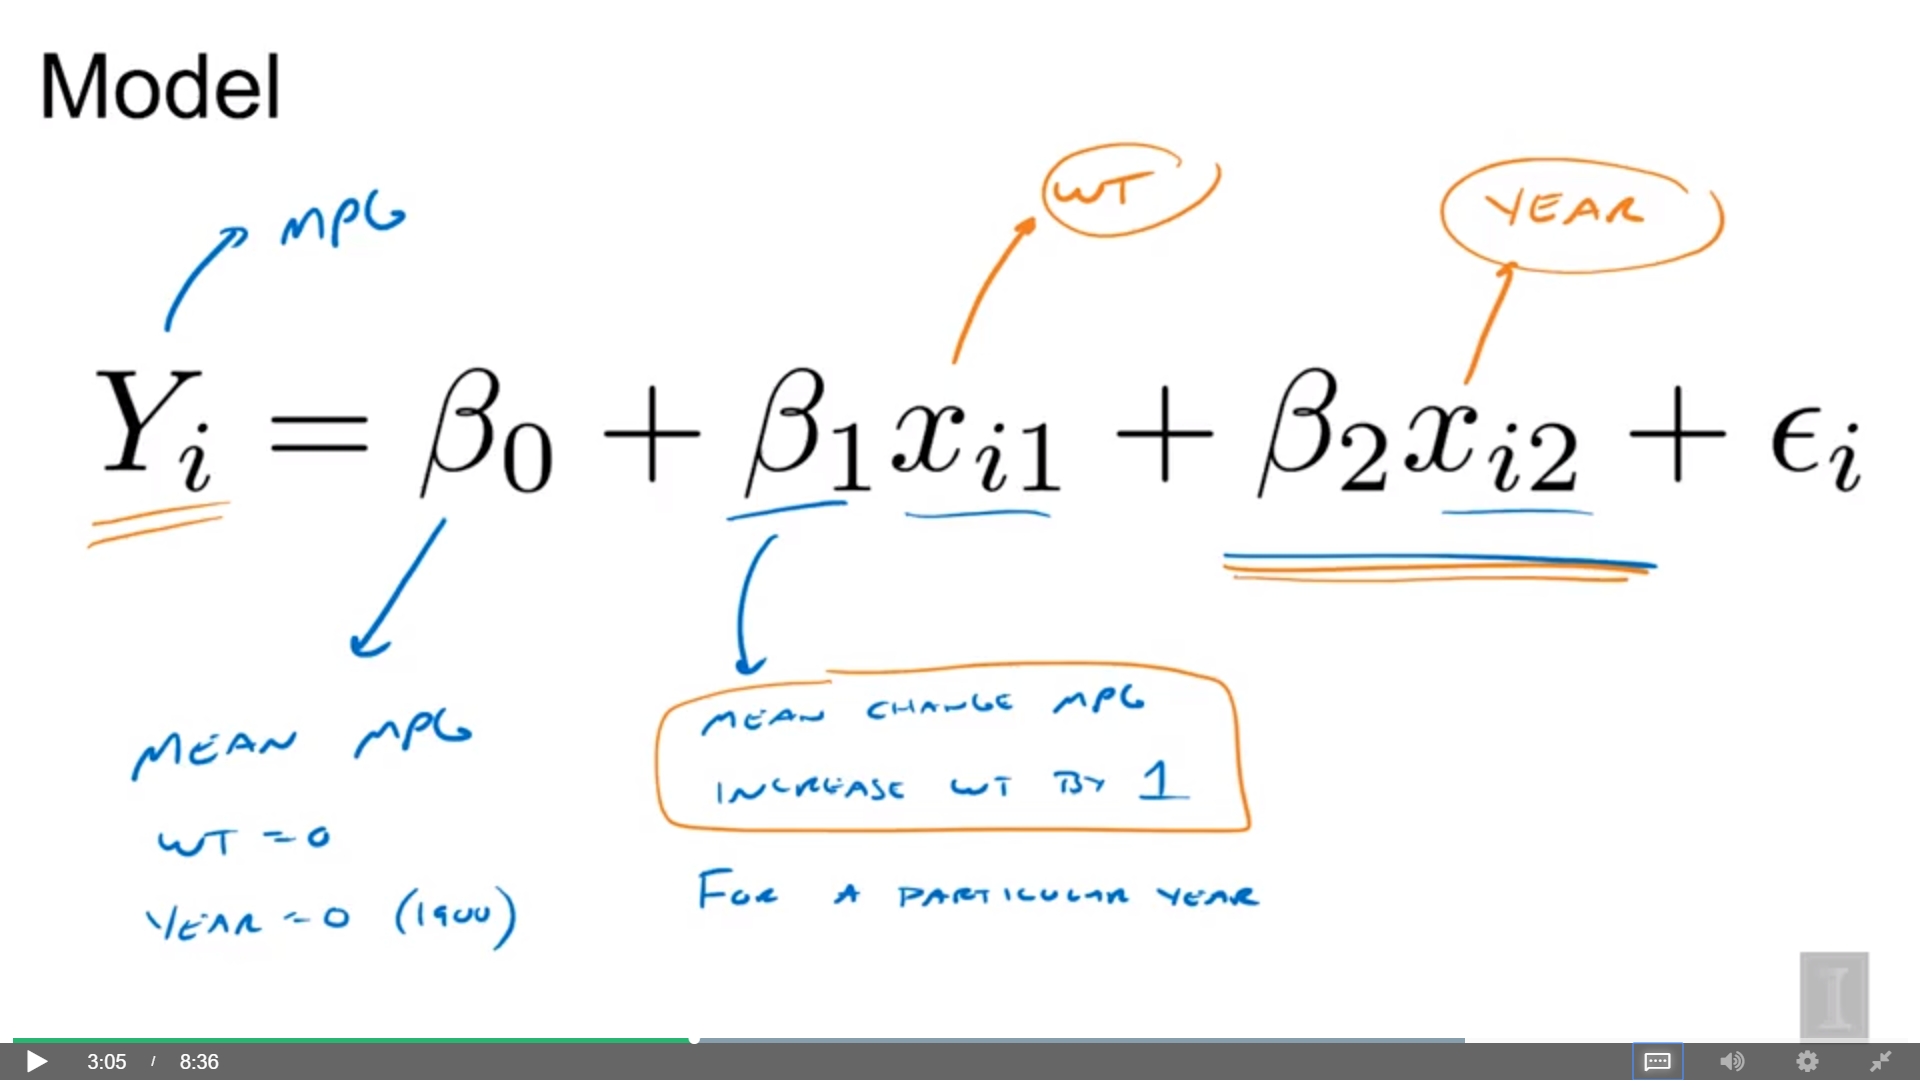 Model
MPG
WT
YEAR
Y_i = β_0 + β_1 x_{i1} + β_2 x_{i2} + ϵ_i
MEAN MPG
WT = 0
YEAR = 0 (1900)
MEAN CHANGE MPG
INCREASE WT BY 1
FOR A PARTICULAR YEAR
I
3:05 / 8:36